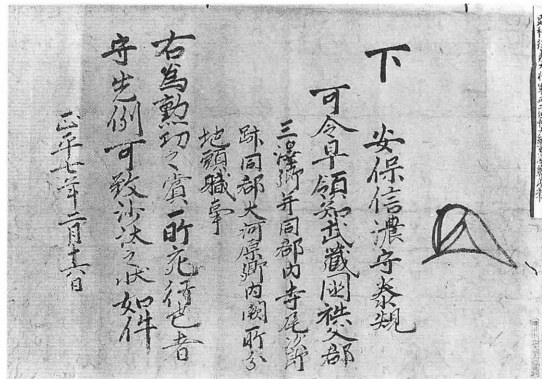 下 安保信濃守泰規
可令早領知武藏國秩父郡
三澤郷并同郡内寺尾
跡同郡大河原郷内闕所分
地頭職事
右為勲功之賞所宛行也者
守先例可致沙汰之状如件
正平七年二月十六日